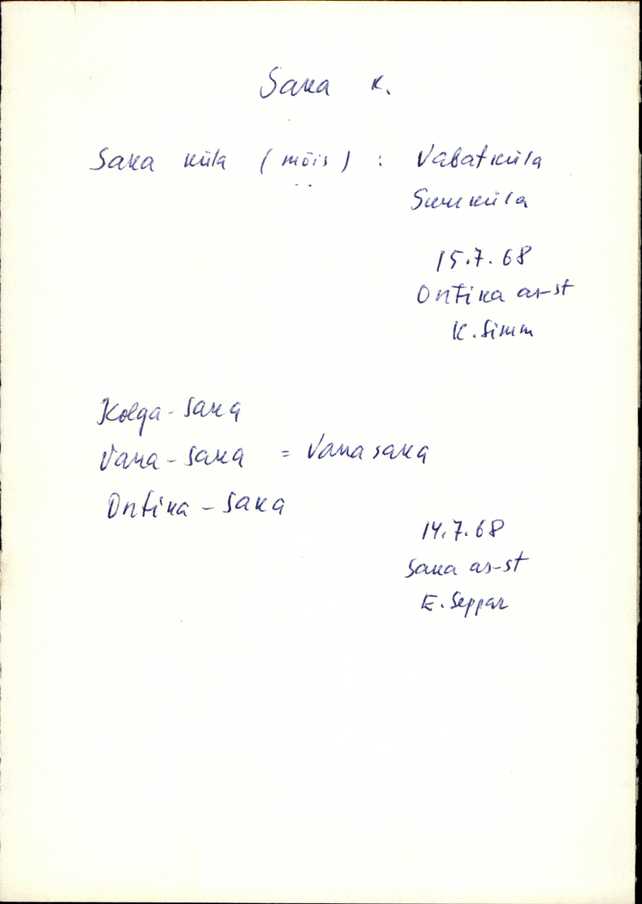 Saka k.
Saka küla (mõis) : Vabatküla
Suurküla
15.7.68
Ontika as-st
K. Simm
Kolga-Saka
Vana-Saka = Vanasaka
Ontika-Saka
14.7.68
Saka as-st
E. Seppar